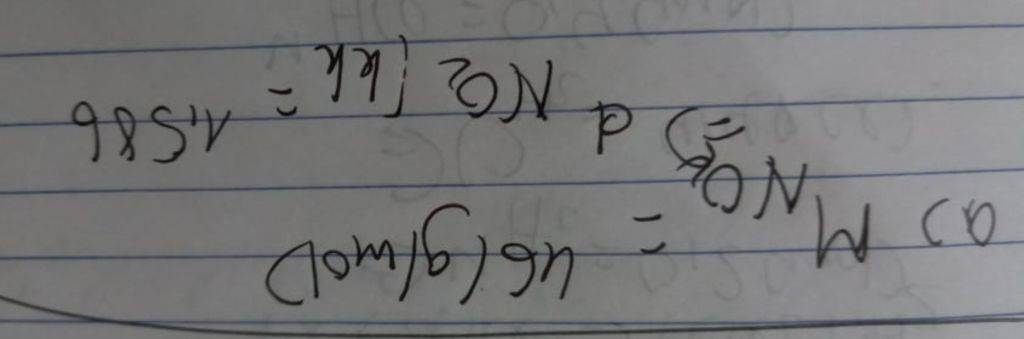 a) M NO₂ = 46 (g/mol)
=> d NO₂/kk = 1,586